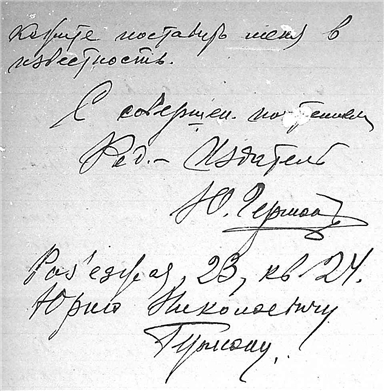 поставить меня в
известность.
С совершен. почтением
Ред.-Издатель
Ю.
Раз'езжая, 23, кв 24.
Юрию Николаевичу